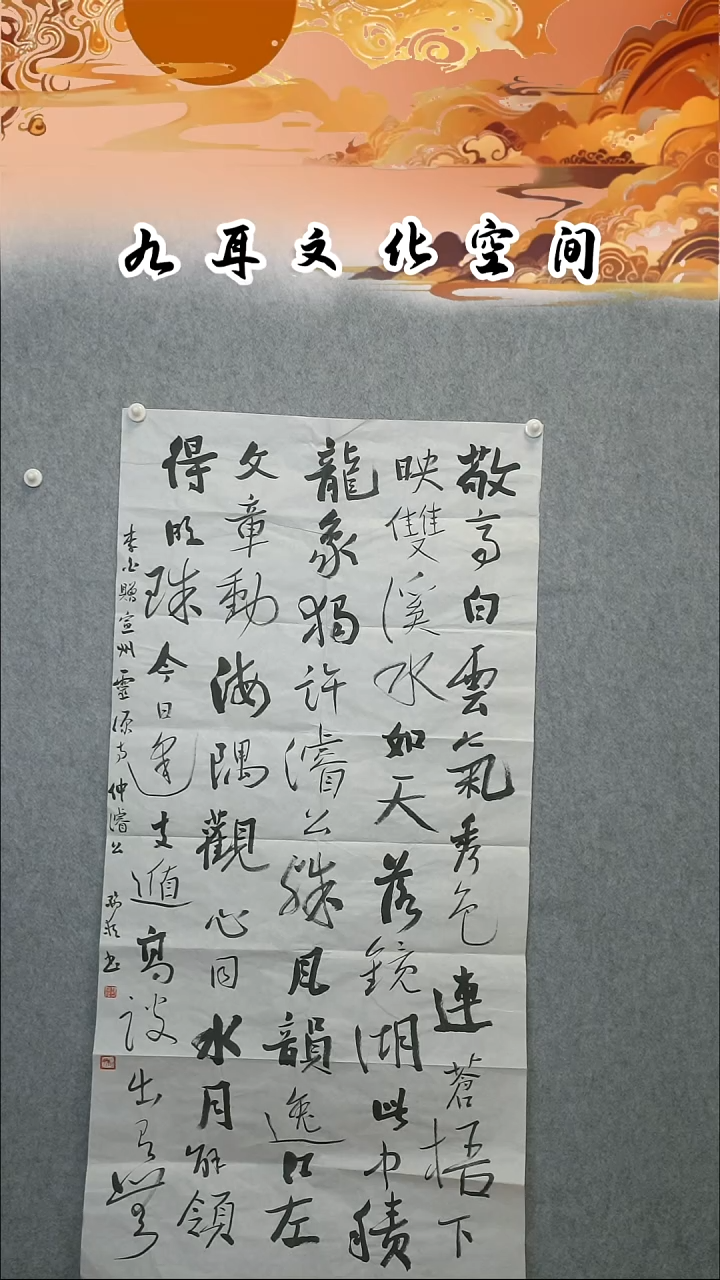 九耳文化空间
敬亭白雲氣秀色連蒼梧下
映雙溪水如天落鏡湖此中積
龍象獨許濬公殊風韻逸江左
文章動海隅觀心同水月解領
得明珠今日逢支遁高談出有無
李白贈宣州靈源寺仲濬公 書